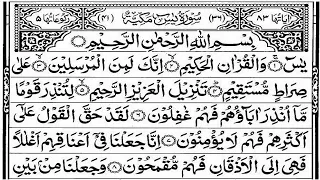 اٰیَاتُهَا ٨٣ (٣٦) سُوْرَةُ یٰسٓ مَکِّیَّةٌ (٤١) رُکُوْعَاتُهَا ٥
بِسْمِ اللّٰهِ الرَّحْمٰنِ الرَّحِیْمِ
یٰسٓ ۝١ وَالْقُرْاٰنِ الْحَکِیْمِ ۝٢ اِنَّکَ لَمِنَ الْمُرْسَلِیْنَ ۝٣ عَلٰی
صِرَاطٍ مُّسْتَقِیْمٍ ۝٤ تَنْزِیْلَ الْعَزِیْزِ الرَّحِیْمِ ۝٥ لِتُنْذِرَ قَوْمًا
مَّاۤ اُنْذِرَ اٰبَآؤُهُمْ فَهُمْ غٰفِلُوْنَ ۝٦ لَقَدْ حَقَّ الْقَوْلُ عَلٰۤی
اَکْثَرِهِمْ فَهُمْ لَا یُؤْمِنُوْنَ ۝٧ اِنَّا جَعَلْنَا فِیْۤ اَعْنَاقِهِمْ اَغْلٰلًا
فَهِیَ اِلَی الْاَذْقَانِ فَهُمْ مُّقْمَحُوْنَ ۝٨ وَجَعَلْنَا مِنْۢ بَیْنِ